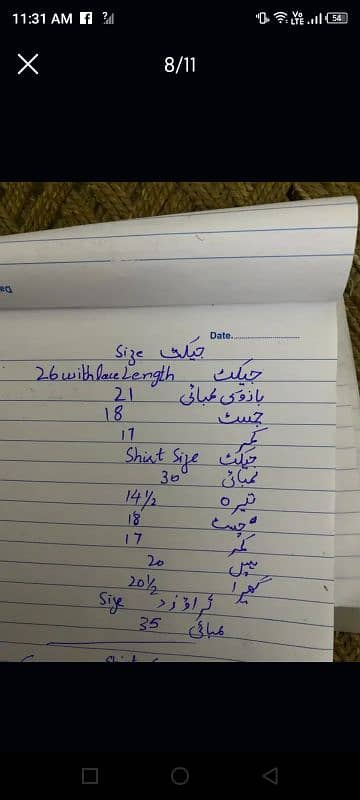 11:31 AM
54
8/11
Date
جیکٹ Size
جیکٹ 26 with lace Length
بازو کی لمبائی 21
چسٹ 18
کمر 17
جیکٹ Shirt Size
لمبائی 30
تیرہ 14 1/2
چسٹ 18
کمر 17
ہپس 20
گھیرا 20 1/2
ٹراؤزر Size
لمبائی 35